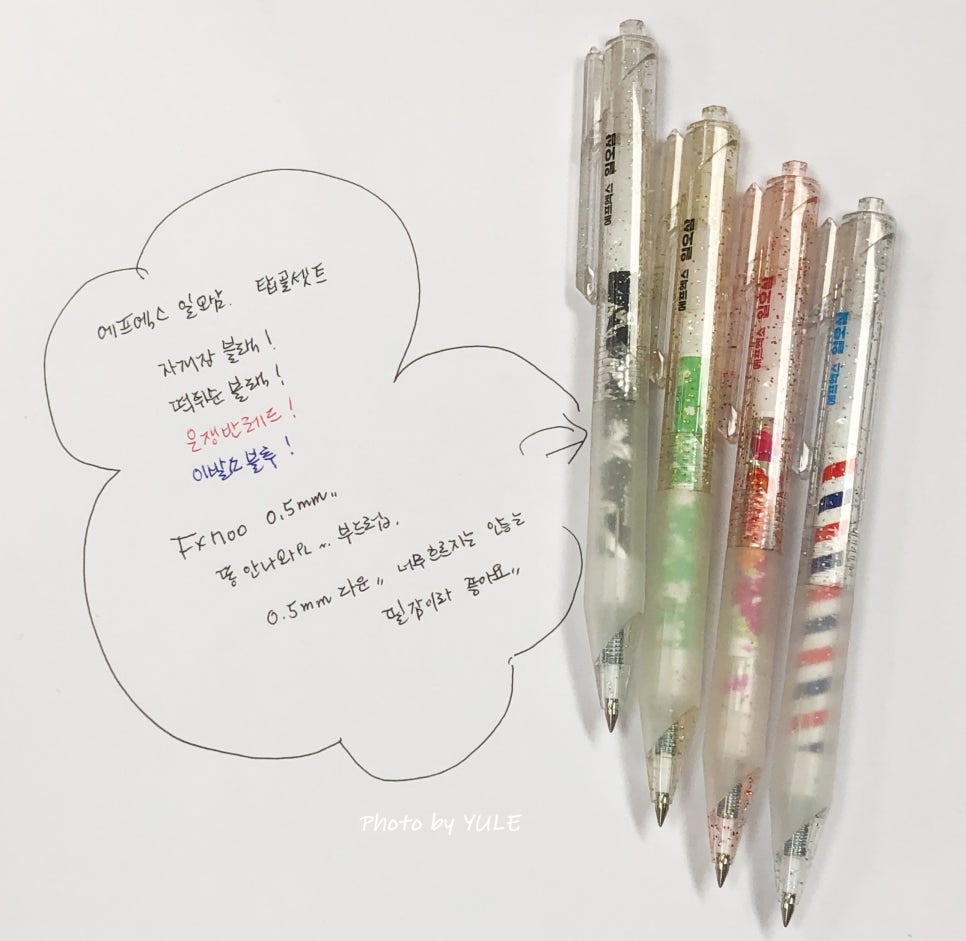 에프엑스 일오삼. 탑골셋트
자개장 블랙!
떡쉬순 블랙!
은쟁반레드!
이발소블루!
FX700 0.5mm,,
똥 안나와요 ~. 부드럽.
0.5mm 다운,, 너무흐르지는 안능는
필감이라 좋아요,,
에프엑스 일오삼
에프엑스 일오삼
에프엑스 일오삼
에프엑스 일오삼
Photo by YULE